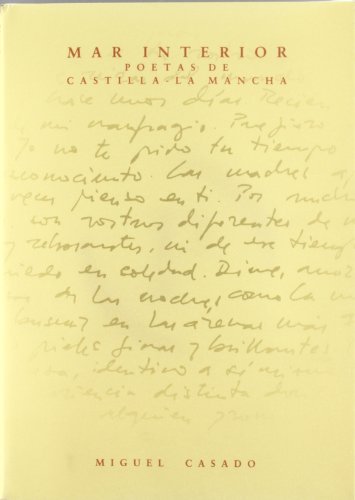 MAR INTERIOR
POETAS DE
CASTILLA-LA MANCHA
hace unos días Recien
mi naufragio. Prefiero
Yo no te pido tu tiempo
conocimiento. Las madres
veces pienso en ti. Por mucho
son rostros diferentes de
y rebosantes, ni de ese tiemp
miedo en soledad. Dime,
de las noches, como la
buscar en las arenas más
pieles finas y brillantes
idéntico a sí mismo
distinta
alguien
MIGUEL CASADO